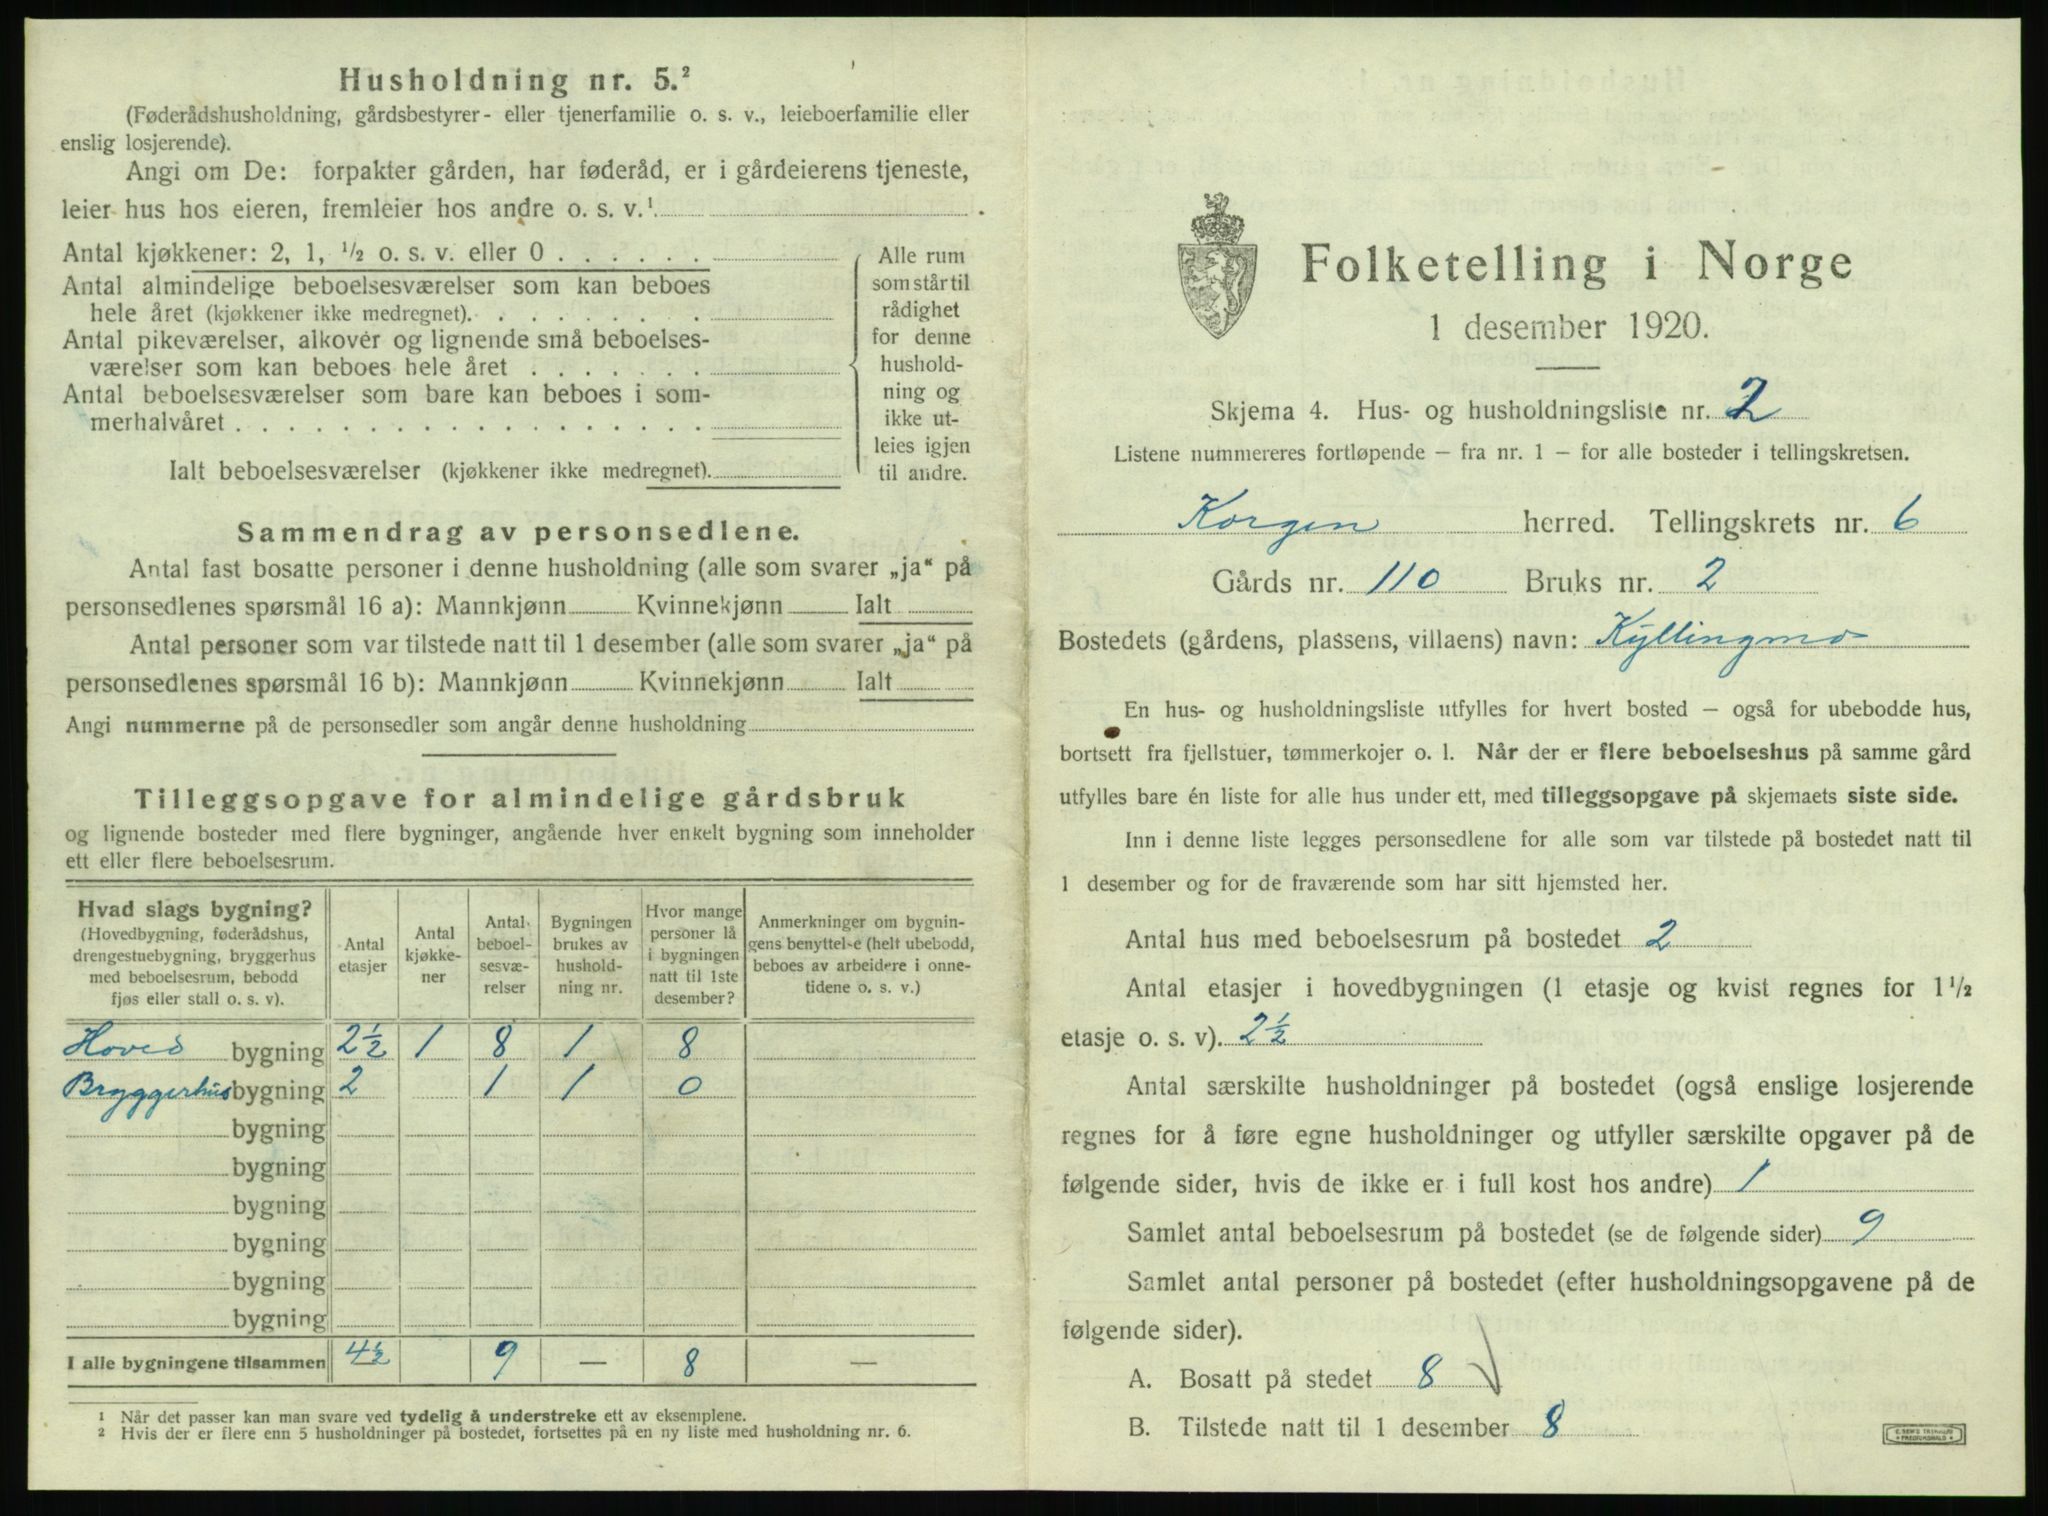 Husholdning nr. 5.²
(Føderådshusholdning, gårdsbestyrer- eller tjenerfamilie o. s. v., leieboerfamilie eller
enslig losjerende).
Angi om De: forpakter gården, har føderåd, er i gårdeierens tjeneste,
leier hus hos eieren, fremleier hos andre o. s. v.¹
Antal kjøkkener: 2, 1, ½ o. s. v. eller 0
Antal almindelige beboelsesværelser som kan beboes
hele året (kjøkkener ikke medregnet).
Antal pikeværelser, alkover og lignende små beboelses-
værelser som kan beboes hele året
Antal beboelsesværelser som bare kan beboes i som-
merhalvåret
Ialt beboelsesværelser (kjøkkener ikke medregnet).
Alle rum
som står til
rådighet
for denne
hushold-
ning og
ikke ut-
leies igjen
til andre.
Sammendrag av personsedlene.
Antal fast bosatte personer i denne husholdning (alle som svarer „ja“ på
personsedlenes spørsmål 16 a): Mannkjønn Kvinnekjønn Ialt
Antal personer som var tilstede natt til 1 desember (alle som svarer „ja“ på
personsedlenes spørsmål 16 b): Mannkjønn Kvinnekjønn Ialt
Angi nummerne på de personsedler som angår denne husholdning
Tilleggsopgave for almindelige gårdsbruk
og lignende bosteder med flere bygninger, angående hver enkelt bygning som inneholder
ett eller flere beboelsesrum.
Hvad slags bygning?
(Hovedbygning, føderådshus,
drengestuebygning, bryggerhus
med beboelsesrum, bebodd
fjøs eller stall o. s. v).
Antal
etasjer
Antal
kjøkke-
ner
Antal
beboel-
sesvæ-
relser
Bygningen
brukes av
hushold-
ning nr.
Hvor mange
personer lå
i bygningen
natt til 1ste
desember?
Anmerkninger om bygnin-
gens benyttelse (helt ubebodd,
beboes av arbeidere i onne-
tidene o. s. v.)
Hoved bygning 2½ 1 8 1 8
Bryggerhus bygning 2 1 1 0
bygning
bygning
bygning
bygning
bygning
bygning
I alle bygningene tilsammen 4½ 9 — 8 —
¹ Når det passer kan man svare ved tydelig å understreke ett av eksemplene.
² Hvis der er flere enn 5 husholdninger på bostedet, fortsettes på en ny liste med husholdning nr. 6.
Folketelling i Norge
1 desember 1920.
Skjema 4. Hus- og husholdningsliste nr. 2
Listene nummereres fortløpende – fra nr. 1 – for alle bosteder i tellingskretsen.
Korgen herred. Tellingskrets nr. 6
Gårds nr. 110 Bruks nr. 2
Bostedets (gårdens, plassens, villaens) navn: Kyllingmo
En hus- og husholdningsliste utfylles for hvert bosted – også for ubebodde hus,
bortsett fra fjellstuer, tømmerkojer o. l. Når der er flere beboelseshus på samme gård
utfylles bare én liste for alle hus under ett, med tilleggsopgave på skjemaets siste side.
Inn i denne liste legges personsedlene for alle som var tilstede på bostedet natt til
1 desember og for de fraværende som har sitt hjemsted her.
Antal hus med beboelsesrum på bostedet 2
Antal etasjer i hovedbygningen (1 etasje og kvist regnes for 1½
etasje o. s. v). 2½
Antal særskilte husholdninger på bostedet (også enslige losjerende
regnes for å føre egne husholdninger og utfyller særskilte opgaver på de
følgende sider, hvis de ikke er i full kost hos andre) 1
Samlet antal beboelsesrum på bostedet (se de følgende sider) 9
Samlet antal personer på bostedet (efter husholdningsopgavene på de
følgende sider).
A. Bosatt på stedet 8
B. Tilstede natt til 1 desember 8